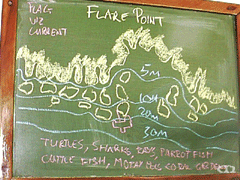 FLARE POINT
FLAG
VIZ
CURRENT
5M
10M
20M
30M
TURTLES, SHARKS, RAYS, PARROT FISH
CUTTLE FISH, CORAL GARDEN